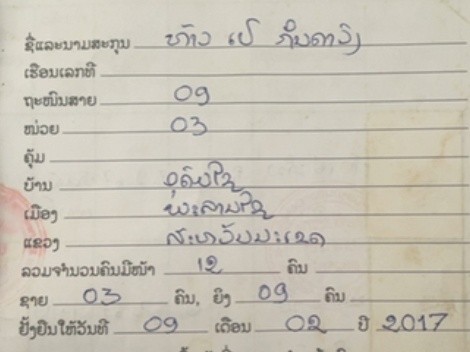 ຊື່ແລະນາມສະກຸນ ທ້າວ ເປ
ເຮືອນເລກທີ
ຖະໜົນສາຍ 09
ໜ່ວຍ 03
ຄຸ້ມ
ບ້ານ ອຸດົມໄຊ
ເມືອງ ພະລານໄຊ
ແຂວງ ສະຫວັນນະເຂດ
ລວມຈຳນວນຄົນມີໜ້າ 12 ຄົນ
ຊາຍ 03 ຄົນ, ຍິງ 09 ຄົນ
ຢັ້ງຢືນໃຫ້ວັນທີ 09 ເດືອນ 02 ປີ 2017